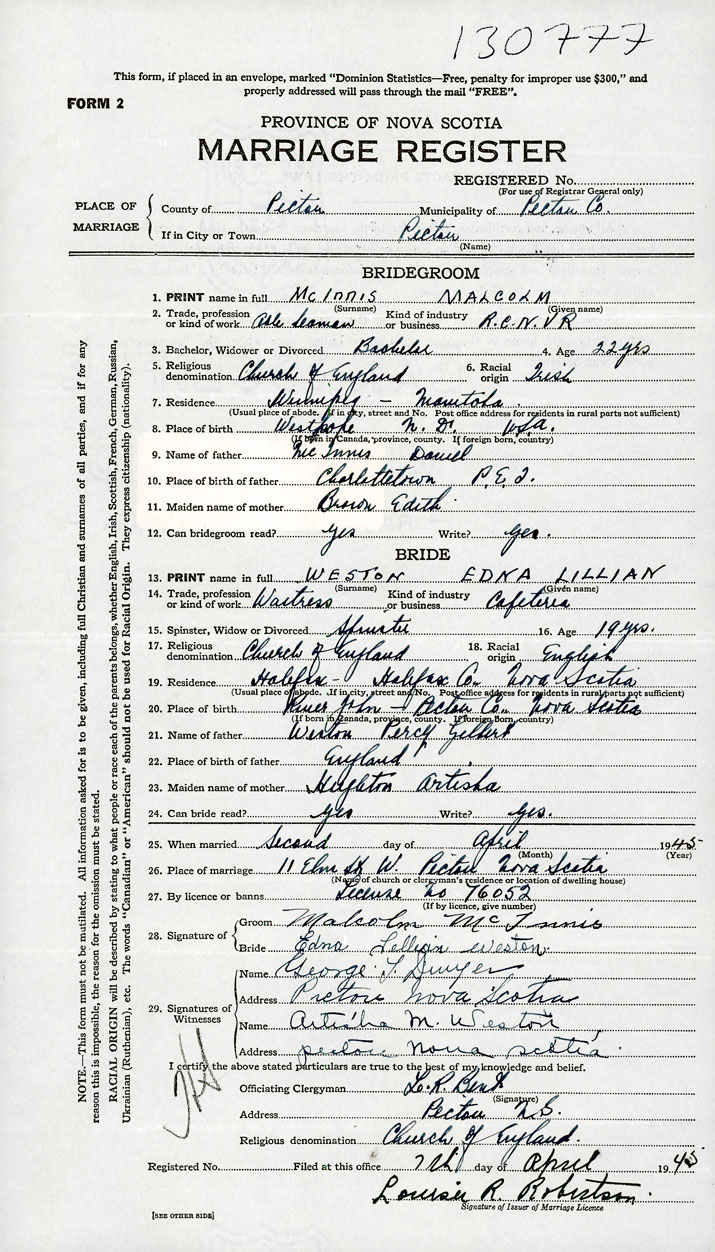 130777
This form, if placed in an envelope, marked "Dominion Statistics—Free, penalty for improper use $300," and
properly addressed will pass through the mail "FREE".
FORM 2
PROVINCE OF NOVA SCOTIA
MARRIAGE REGISTER
REGISTERED No.
(For use of Registrar General only)
PLACE OF MARRIAGE
County of Pictou Municipality of Pictou Co.
If in City or Town Pictou
(Name)
BRIDEGROOM
1. PRINT name in full McINNIS MALCOLM
(Surname) (Given name)
2. Trade, profession or kind of work Able Seaman Kind of industry or business R.C.N.V.R
3. Bachelor, Widower or Divorced Bachelor 4. Age 22 yrs
5. Religious denomination Church of England 6. Racial origin Irish
7. Residence Winnipeg - Manitoba
(Usual place of abode. If in city, street and No. Post office address for residents in rural parts not sufficient)
8. Place of birth Westhope N. D. USA.
(If born in Canada, province, county. If foreign born, country)
9. Name of father McInnis Daniel
10. Place of birth of father Charlottetown P.E.I.
11. Maiden name of mother Brown Edith
12. Can bridegroom read? yes Write? yes.
BRIDE
13. PRINT name in full WESTON EDNA LILLIAN
(Surname) (Given name)
14. Trade, profession or kind of work Waitress Kind of industry or business Cafeteria
15. Spinster, Widow or Divorced Spinster 16. Age 19 yrs.
17. Religious denomination Church of England 18. Racial origin English
19. Residence Halifax - Halifax Co. Nova Scotia
(Usual place of abode. If in city, street and No. Post office address for residents in rural parts not sufficient)
20. Place of birth River John - Pictou Co. Nova Scotia
(If born in Canada, province, county. If foreign born, country)
21. Name of father Weston Percy Gilbert
22. Place of birth of father England
23. Maiden name of mother Artisha
24. Can bride read? yes Write? yes.
25. When married Second day of April 1945
(Month) (Year)
26. Place of marriage 11 Elm St W. Pictou Nova Scotia
(Name of church or clergyman's residence or location of dwelling house)
27. By licence or banns License no 76052
(If by licence, give number)
28. Signature of
Groom Malcolm McInnis
Bride Edna Lillian Weston
29. Signatures of Witnesses
Name George J. Dwyer
Address Pictou Nova Scotia
Name Artisha M. Weston
Address pictou Nova scotia
I certify the above stated particulars are true to the best of my knowledge and belief.
Officiating Clergyman L.R. Bent
(Signature)
Address Pictou N.S.
Religious denomination Church of England.
Registered No. Filed at this office 7th day of April 1945
Louise R. Robertson.
Signature of Issuer of Marriage Licence
[SEE OTHER SIDE]
NOTE.—This form must not be mutilated. All information asked for is to be given, including full Christian and surnames of all parties, and if for any
reason this is impossible, the reason for the omission must be stated.
RACIAL ORIGIN will be described by stating to what people or race each of the parents belongs, whether English, Irish, Scottish, French, German, Russian,
Ukrainian (Ruthenian), etc. The words "Canadian" or "American" should not be used for Racial Origin. They express citizenship (nationality).